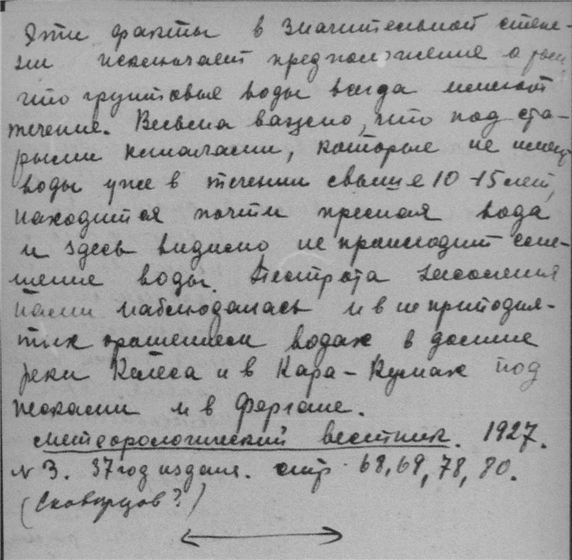 Эти факты в значительной степе-
ни исключают предположение о том
что грунтовые воды всегда имеют
течение. Весьма важно, что под ста-
рыми каналами, которые не имеют
воды уже в течении свыше 10-15 лет,
находится почти пресная вода
и здесь видимо не происходит сме-
шение воды. Пестрота засоления
нами наблюдалась и в не приподня-
тых орошением водах в долине
реки Келеса и в Кара-Кумах под
песками и в Фергане.
Метеорологический вестник. 1927.
№ 3. 37 год издания. стр. 68, 69, 78, 80.
(Скворцов?)